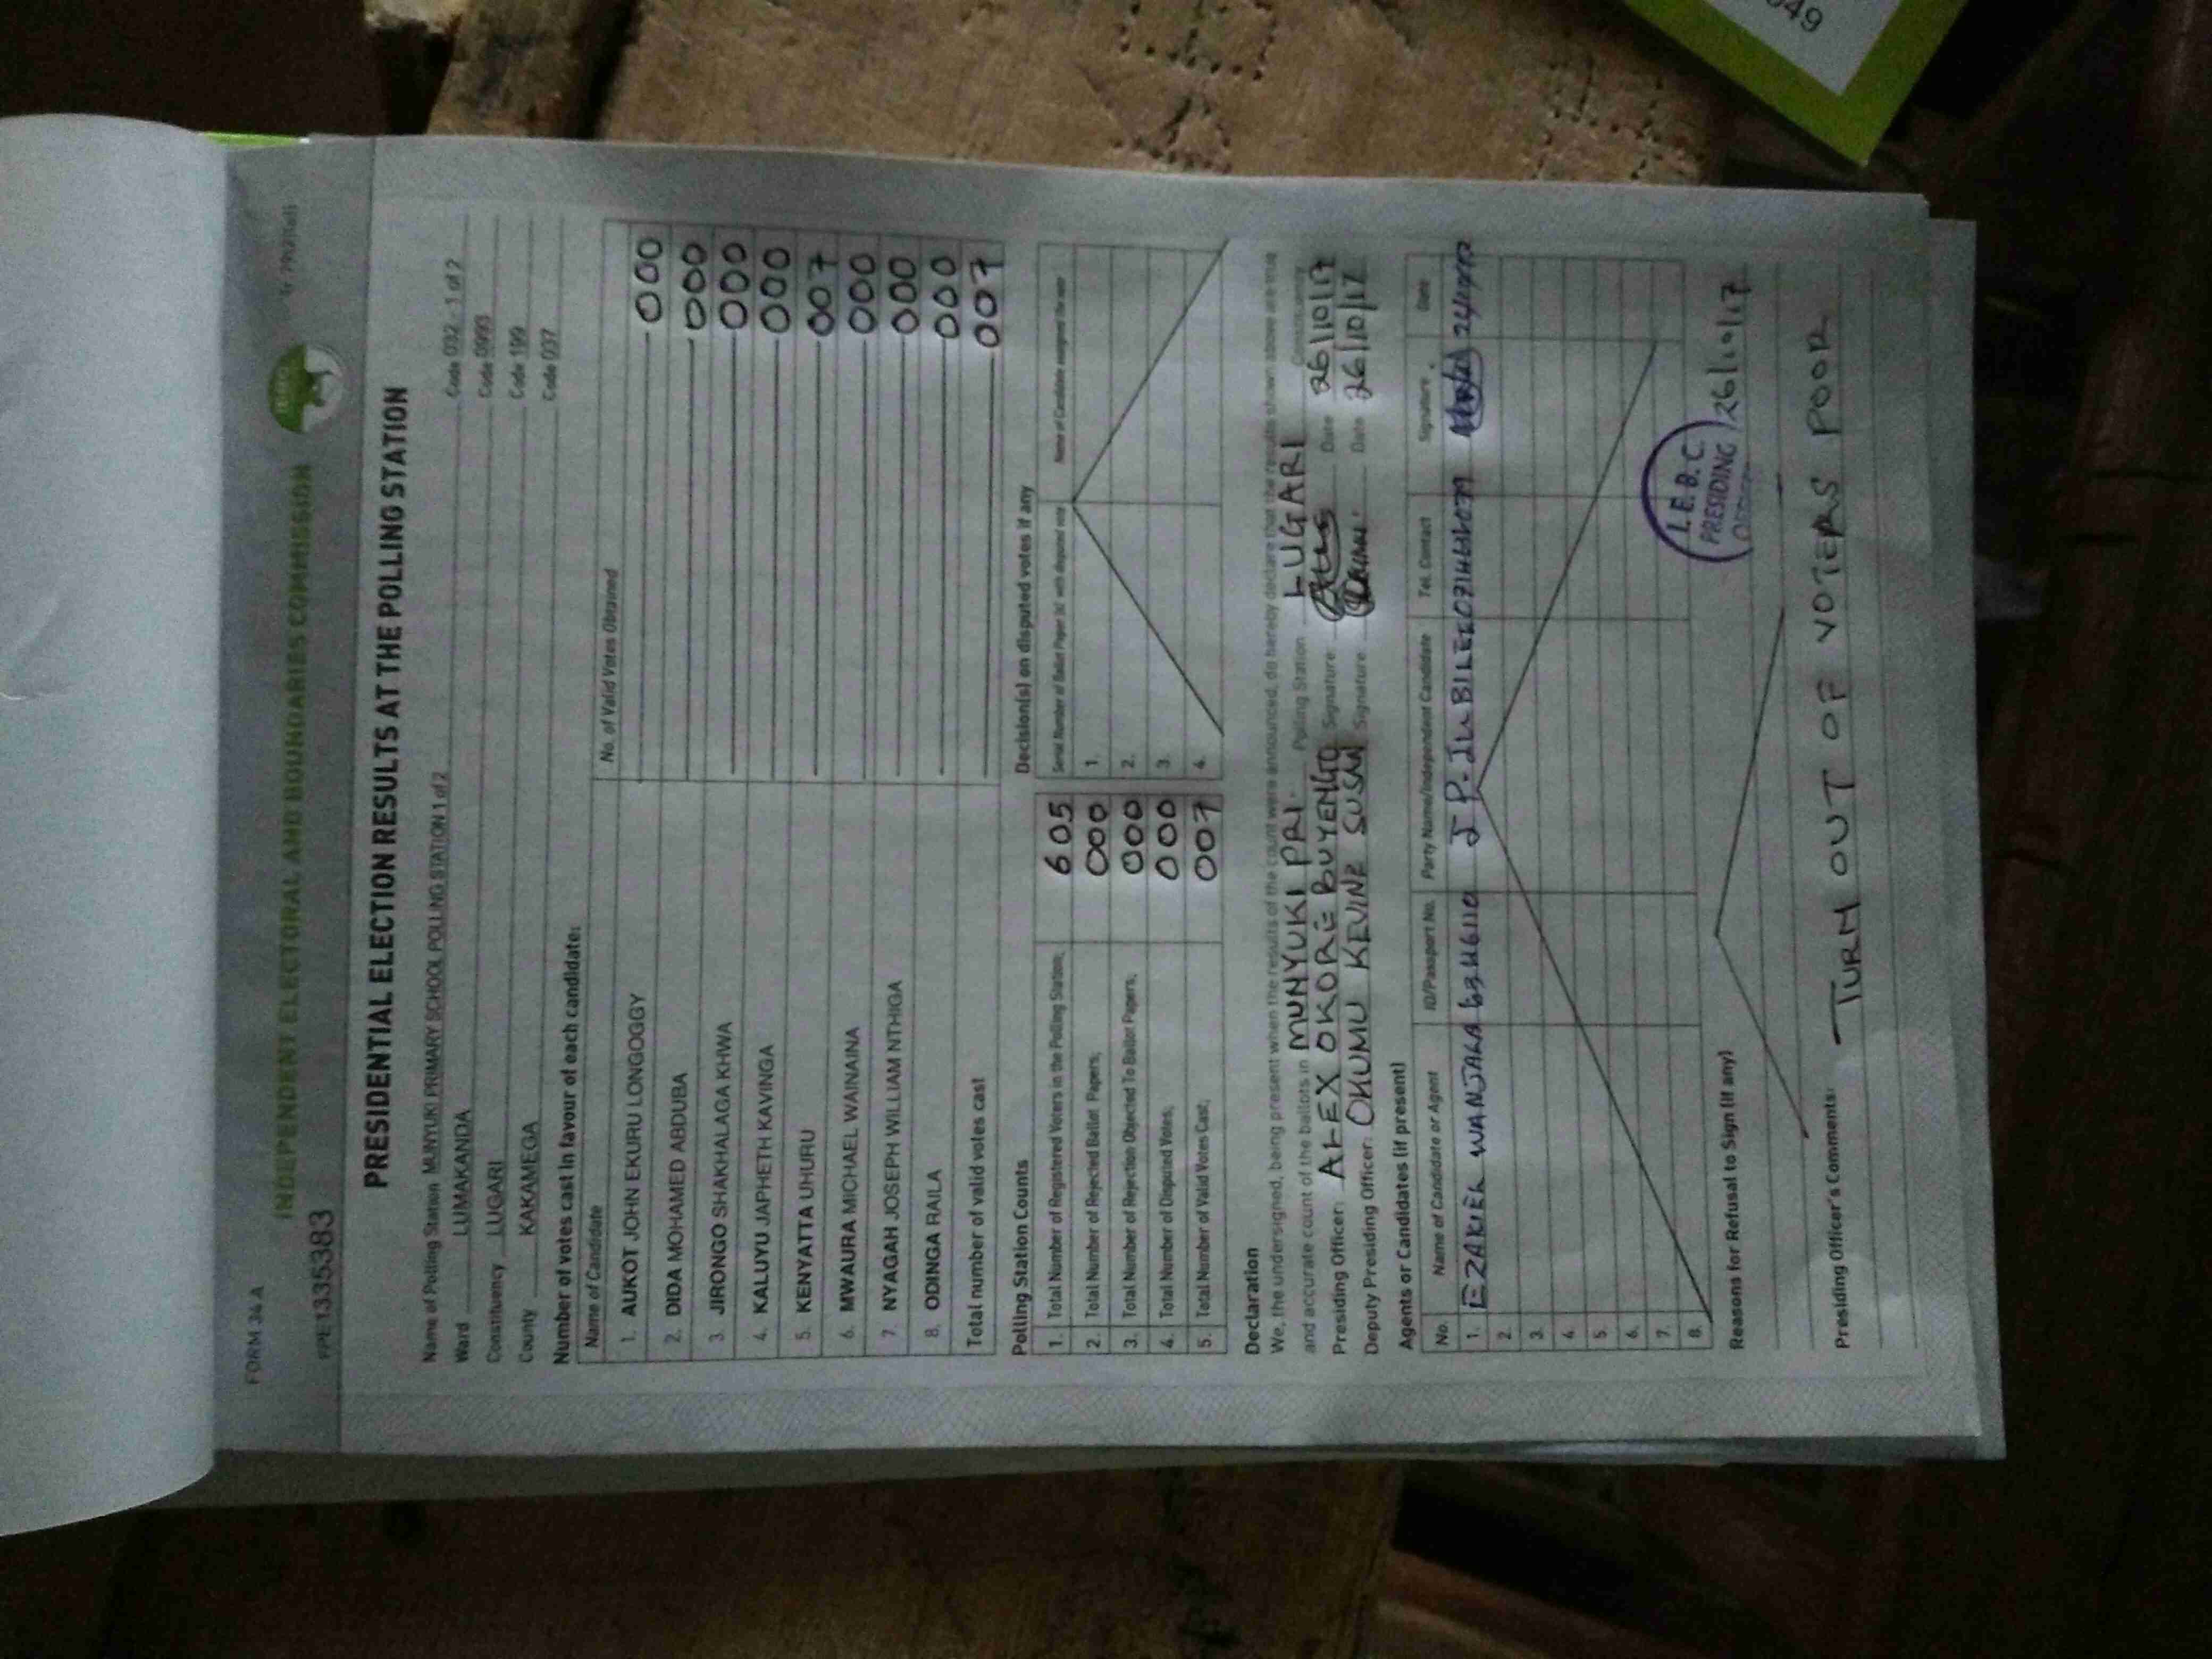 049
FORM 34 A
INDEPENDENT ELECTORAL AND BOUNDARIES COMMISSION
PPE1335383
PRESIDENTIAL ELECTION RESULTS AT THE POLLING STATION
Name of Polling Station MUNYUKI PRIMARY SCHOOL POLLING STATION 1 of 2 Code 032 - 1 of 2
Ward LUMAKANDA Code 0993
Constituency LUGARI Code 199
County KAKAMEGA Code 037
Number of votes cast in favour of each candidate:
Name of Candidate No. of Valid Votes Obtained
1. AUKOT JOHN EKURU LONGOGGY 000
2. DIDA MOHAMED ABDUBA 000
3. JIRONGO SHAKHALAGA KHWA 000
4. KALUYU JAPHETH KAVINGA 000
5. KENYATTA UHURU 007
6. MWAURA MICHAEL WAINAINA 000
7. NYAGAH JOSEPH WILLIAM NTHIGA 000
8. ODINGA RAILA 000
Total number of valid votes cast 007
Polling Station Counts Decision(s) on disputed votes if any
1. Total Number of Registered Voters in the Polling Station; 605
2. Total Number of Rejected Ballot Papers; 000
3. Total Number of Rejection Objected To Ballot Papers; 000
4. Total Number of Disputed Votes; 000
5. Total Number of Valid Votes Cast; 007
Serial Number of Ballot Paper (s) with disputed vote Name of Candidate assigned the vote
1.
2.
3.
4.
Declaration
We, the undersigned, being present when the results of the count were announced, do hereby declare that the results shown above are true
and accurate count of the ballots in MUNYUKI PRI. Polling Station LUGARI Constituency
Presiding Officer: ALEX OKORE BUYENGO Signature: Date 26/10/17
Deputy Presiding Officer: OKUMU KEVINE SUSAN Signature: Date 26/10/17
Agents or Candidates (if present)
No. Name of Candidate or Agent ID/Passport No. Party Name/Independent Candidate Tel. Contact Signature Date
1. EZAKIEL WANJALA J P. JUBILEE
2.
3.
4.
5.
6.
7.
8.
I.E.B.C.
PRESIDING 26/10/17
Reasons for Refusal to Sign (if any)
Presiding Officer's Comments: TURN OUT OF VOTERS POOR